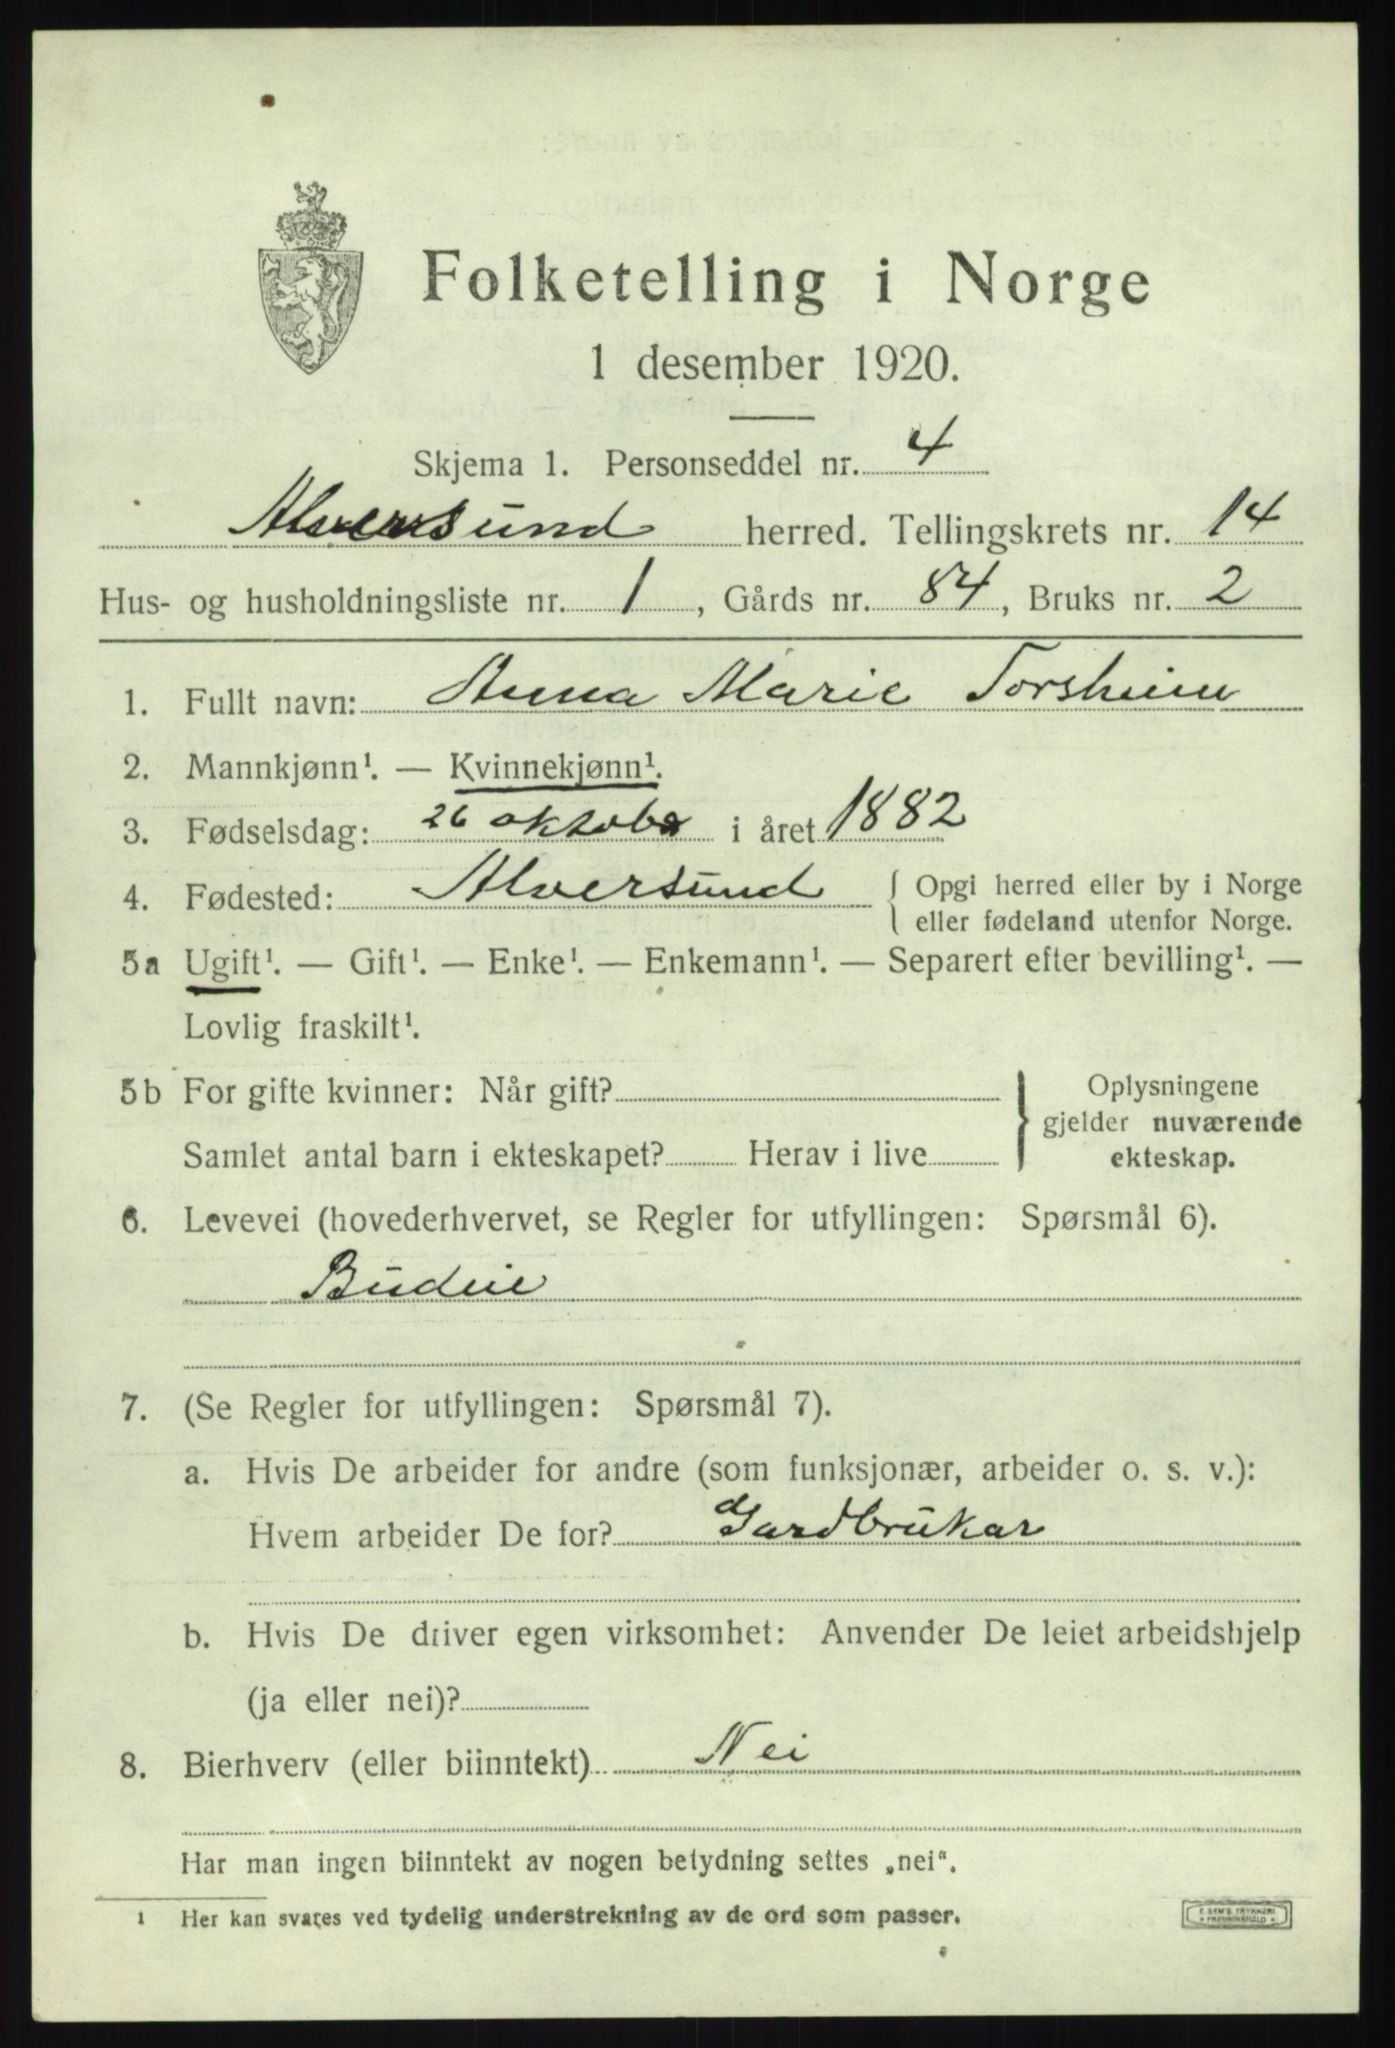 Folketelling i Norge
1 desember 1920.
Skjema 1. Personseddel nr. 4
Alversund herred. Tellingskrets nr. 14
Hus- og husholdningsliste nr. 1, Gårds nr. 84, Bruks nr. 2
1. Fullt navn: Anna Marie Torsheim
2. Mannkjønn¹. — Kvinnekjønn¹.
3. Fødselsdag: 26 oktober i året 1882
4. Fødested: Alversund { Opgi herred eller by i Norge
eller fødeland utenfor Norge.
5a Ugift¹. — Gift¹. — Enke¹. — Enkemann¹. — Separert efter bevilling¹. —
Lovlig fraskilt¹.
5b For gifte kvinner: Når gift? } Oplysningene
gjelder nuværende
Samlet antal barn i ekteskapet? Herav i live ekteskap.
6. Levevei (hovederhvervet, se Regler for utfyllingen: Spørsmål 6).
Budeie
7. (Se Regler for utfyllingen: Spørsmål 7).
a. Hvis De arbeider for andre (som funksjonær, arbeider o. s. v.):
Hvem arbeider De for? Gardbrukar
b. Hvis De driver egen virksomhet: Anvender De leiet arbeidshjelp
(ja eller nei)?
8. Bierhverv (eller biinntekt) Nei
Har man ingen biinntekt av nogen betydning settes „nei“.
1 Her kan svares ved tydelig understrekning av de ord som passer.